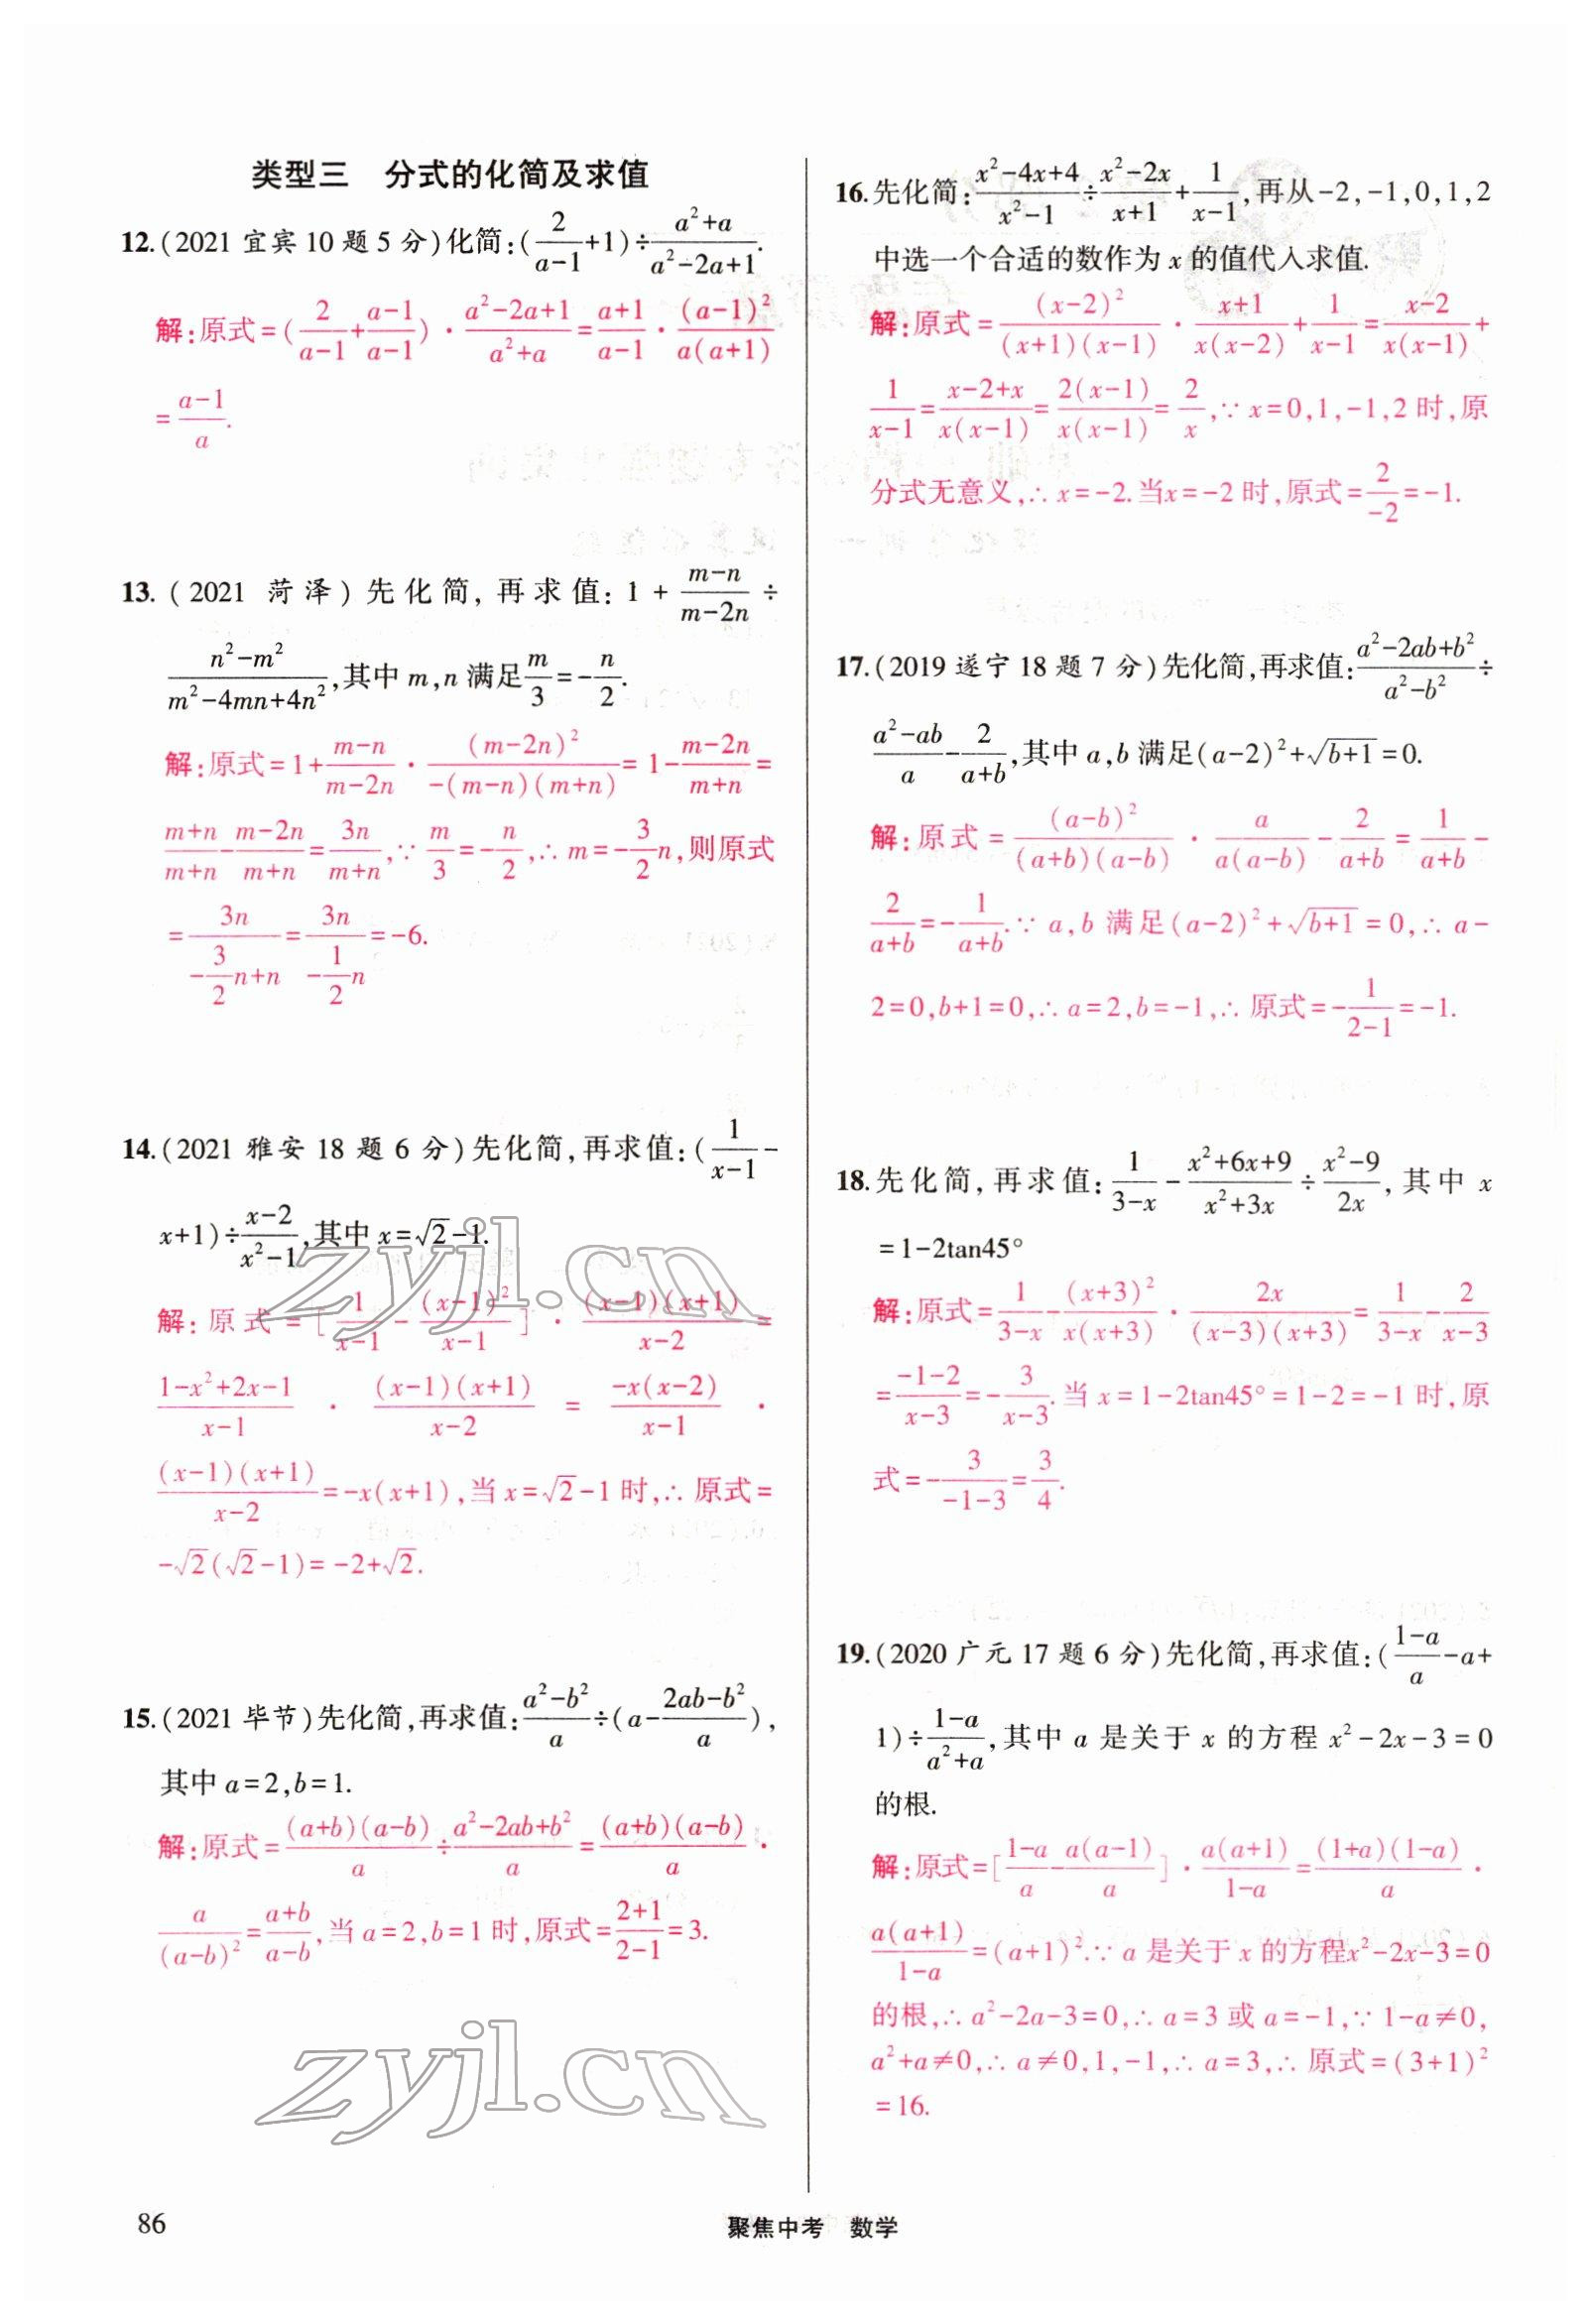 类型三 分式的化简及求值
12.(2021 宜宾 10 题 5 分)化简:(2/(a-1)+1)÷(a²+a)/(a²-2a+1).
解:原式=(2/(a-1)+(a-1)/(a-1))·(a²-2a+1)/(a²+a)=(a+1)/(a-1)·(a-1)²/(a(a+1))
=(a-1)/a.
13.(2021 菏泽)先化简,再求值:1+(m-n)/(m-2n)÷
(n²-m²)/(m²-4mn+4n²),其中 m,n 满足 m/3=-n/2.
解:原式=1+(m-n)/(m-2n)·(m-2n)²/(-(m-n)(m+n))=1-(m-2n)/(m+n)=
(m+n)/(m+n)-(m-2n)/(m+n)=3n/(m+n),∵m/3=-n/2,∴m=-3/2n,则原式
=3n/(-3/2n+n)=3n/(-1/2n)=-6.
14.(2021 雅安 18 题 6 分)先化简,再求值:(1/(x-1)-
x+1)÷(x-2)/(x²-1),其中 x=√2-1.
解:原式=[1/(x-1)-(x-1)²/(x-1)]·(x-1)(x+1)/(x-2)=
(1-x²+2x-1)/(x-1)·(x-1)(x+1)/(x-2)=-x(x-2)/(x-1)·
(x-1)(x+1)/(x-2)=-x(x+1),当 x=√2-1 时,∴原式=
-√2(√2-1)=-2+√2.
15.(2021 毕节)先化简,再求值:(a²-b²)/a÷(a-(2ab-b²)/a),
其中 a=2,b=1.
解:原式=(a+b)(a-b)/a÷(a²-2ab+b²)/a=(a+b)(a-b)/a·
a/(a-b)²=(a+b)/(a-b),当 a=2,b=1 时,原式=(2+1)/(2-1)=3.
16.先化简:(x²-4x+4)/(x²-1)÷(x²-2x)/(x+1)+1/(x-1),再从-2,-1,0,1,2
中选一个合适的数作为 x 的值代入求值.
解:原式=(x-2)²/((x+1)(x-1))·(x+1)/(x(x-2))+1/(x-1)=(x-2)/(x(x-1))+
1/(x-1)=(x-2+x)/(x(x-1))=2(x-1)/(x(x-1))=2/x,∵x=0,1,-1,2 时,原
分式无意义,∴x=-2.当x=-2 时,原式=2/(-2)=-1.
17.(2019 遂宁 18 题 7 分)先化简,再求值:(a²-2ab+b²)/(a²-b²)÷
(a²-ab)/a-2/(a+b),其中 a,b 满足(a-2)²+√(b+1)=0.
解:原式=(a-b)²/((a+b)(a-b))·a/(a(a-b))-2/(a+b)=1/(a+b)-
2/(a+b)=-1/(a+b).∵a,b 满足(a-2)²+√(b+1)=0,∴a-
2=0,b+1=0,∴a=2,b=-1,∴原式=-1/(2-1)=-1.
18.先化简,再求值:1/(3-x)-(x²+6x+9)/(x²+3x)÷(x²-9)/(2x),其中 x
=1-2tan45°
解:原式=1/(3-x)-(x+3)²/(x(x+3))·2x/((x-3)(x+3))=1/(3-x)-2/(x-3)
=(-1-2)/(x-3)=-3/(x-3).当 x=1-2tan45°=1-2=-1 时,原
式=-3/(-1-3)=3/4.
19.(2020 广元 17 题 6 分)先化简,再求值:((1-a)/a-a+
1)÷(1-a)/(a²+a),其中 a 是关于 x 的方程 x²-2x-3=0
的根.
解:原式=[(1-a)/a-a(a-1)/a]·a(a+1)/(1-a)=(1+a)(1-a)/a·
a(a+1)/(1-a)=(a+1)².∵a 是关于 x 的方程x²-2x-3=0
的根,∴a²-2a-3=0,∴a=3 或 a=-1,∵1-a≠0,
a²+a≠0,∴a≠0,1,-1,∴a=3,∴原式=(3+1)²
=16.
zyjl.cn
zyjl.cn
86
聚焦中考 数学